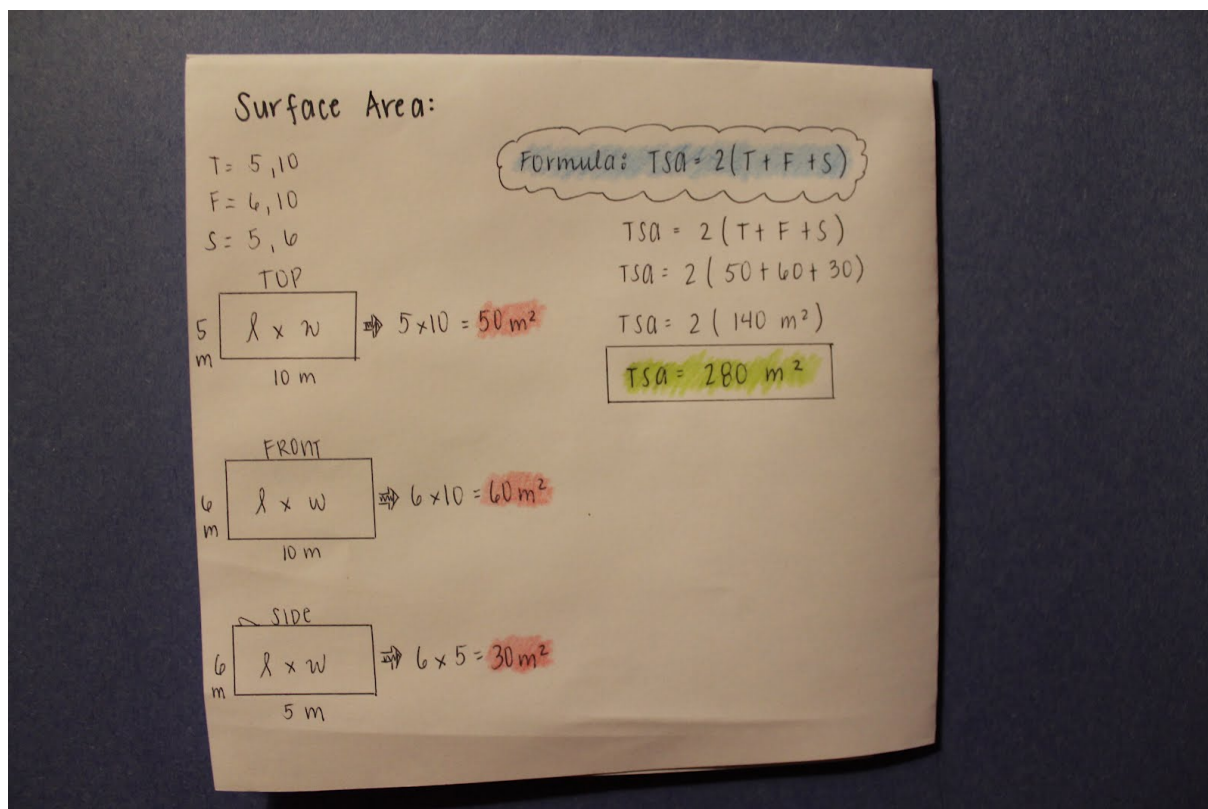 Surface Area:
T= 5,10
F= 6,10
S= 5,6
TOP
5 m
l x w
⇒ 5x10 = 50 m²
10 m
FRONT
6 m
l x w
⇒ 6x10 = 60 m²
10 m
SIDE
6 m
l x w
⇒ 6x5 = 30 m²
5 m
Formula: TSA = 2(T + F + S)
TSA = 2 (T + F + S)
TSA = 2 (50 + 60 + 30)
TSA = 2 (140 m²)
TSA = 280 m²